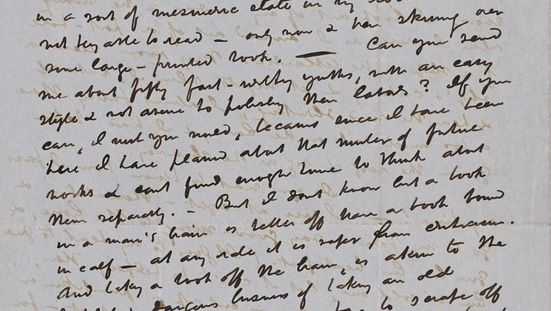 in a sort of mesmeric state in my
not being able to read — only now & then skimming over
some large-printed book. — Can you send
me about fifty fast-writing youths, with an easy
style & not averse to polishing their labors? If you
can, I wish you would, because since I have been
here I have planned about that number of future
works & cant find enough time to think about
them separately. — But I dont know but a book
in a man's brain is better off than a book bound
in calf — at any rate it is safer from criticism.
And taking a book off the brain, is akin to the
dangerous business of taking an old
to scrape off